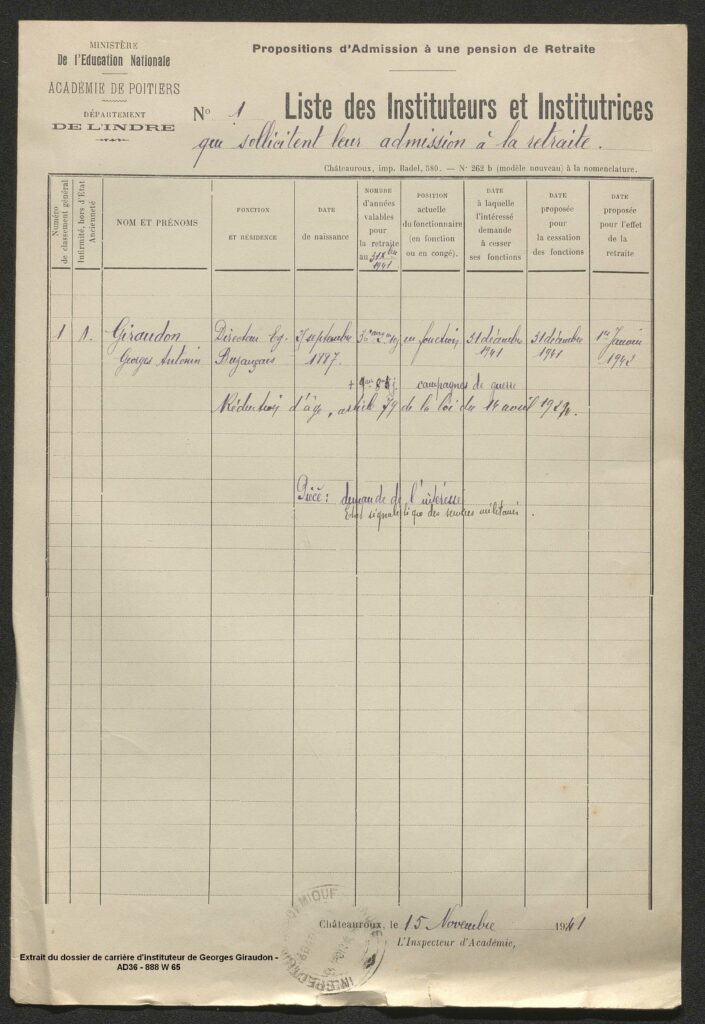 MINISTÈRE
De l'Education Nationale
ACADÉMIE DE POITIERS
DÉPARTEMENT
DE L'INDRE
Propositions d'Admission à une pension de Retraite
N° 1 Liste des Instituteurs et Institutrices
qui sollicitent leur admission à la retraite.
Châteauroux, imp. Badel, 580. — N° 262 b (modèle nouveau) à la nomenclature.
Numéro de classement général
Infirmité, hors d'Etat Ancienneté
NOM ET PRÉNOMS
FONCTION
ET RÉSIDENCE
DATE
de naissance
NOMBRE
d'années
valables
pour
la retraite
au 31 Xbre
1941
POSITION
actuelle
du fonctionnaire
(en fonction
ou en congé).
DATE
à laquelle
l'intéressé
demande
à cesser
ses fonctions
DATE
proposée
pour
la cessation
des fonctions
DATE
proposée
pour l'effet
de la
retraite
1 A. Giraudon Directeur septembre en fonction 31 décembre 31 décembre 1er Janvier
Georges Antonin Buzançais 1887. 1941 1941 1942
campagnes de guerre
Réduction d'âge, article 79 de la loi du 14 avril
Pièce: demande de l'intéressé
Etat signalétique des services militaires.
Châteauroux, le 15 Novembre 1941
L'Inspecteur d'Académie,
Extrait du dossier de carrière d'instituteur de Georges Giraudon -
AD36 - 888 W 65